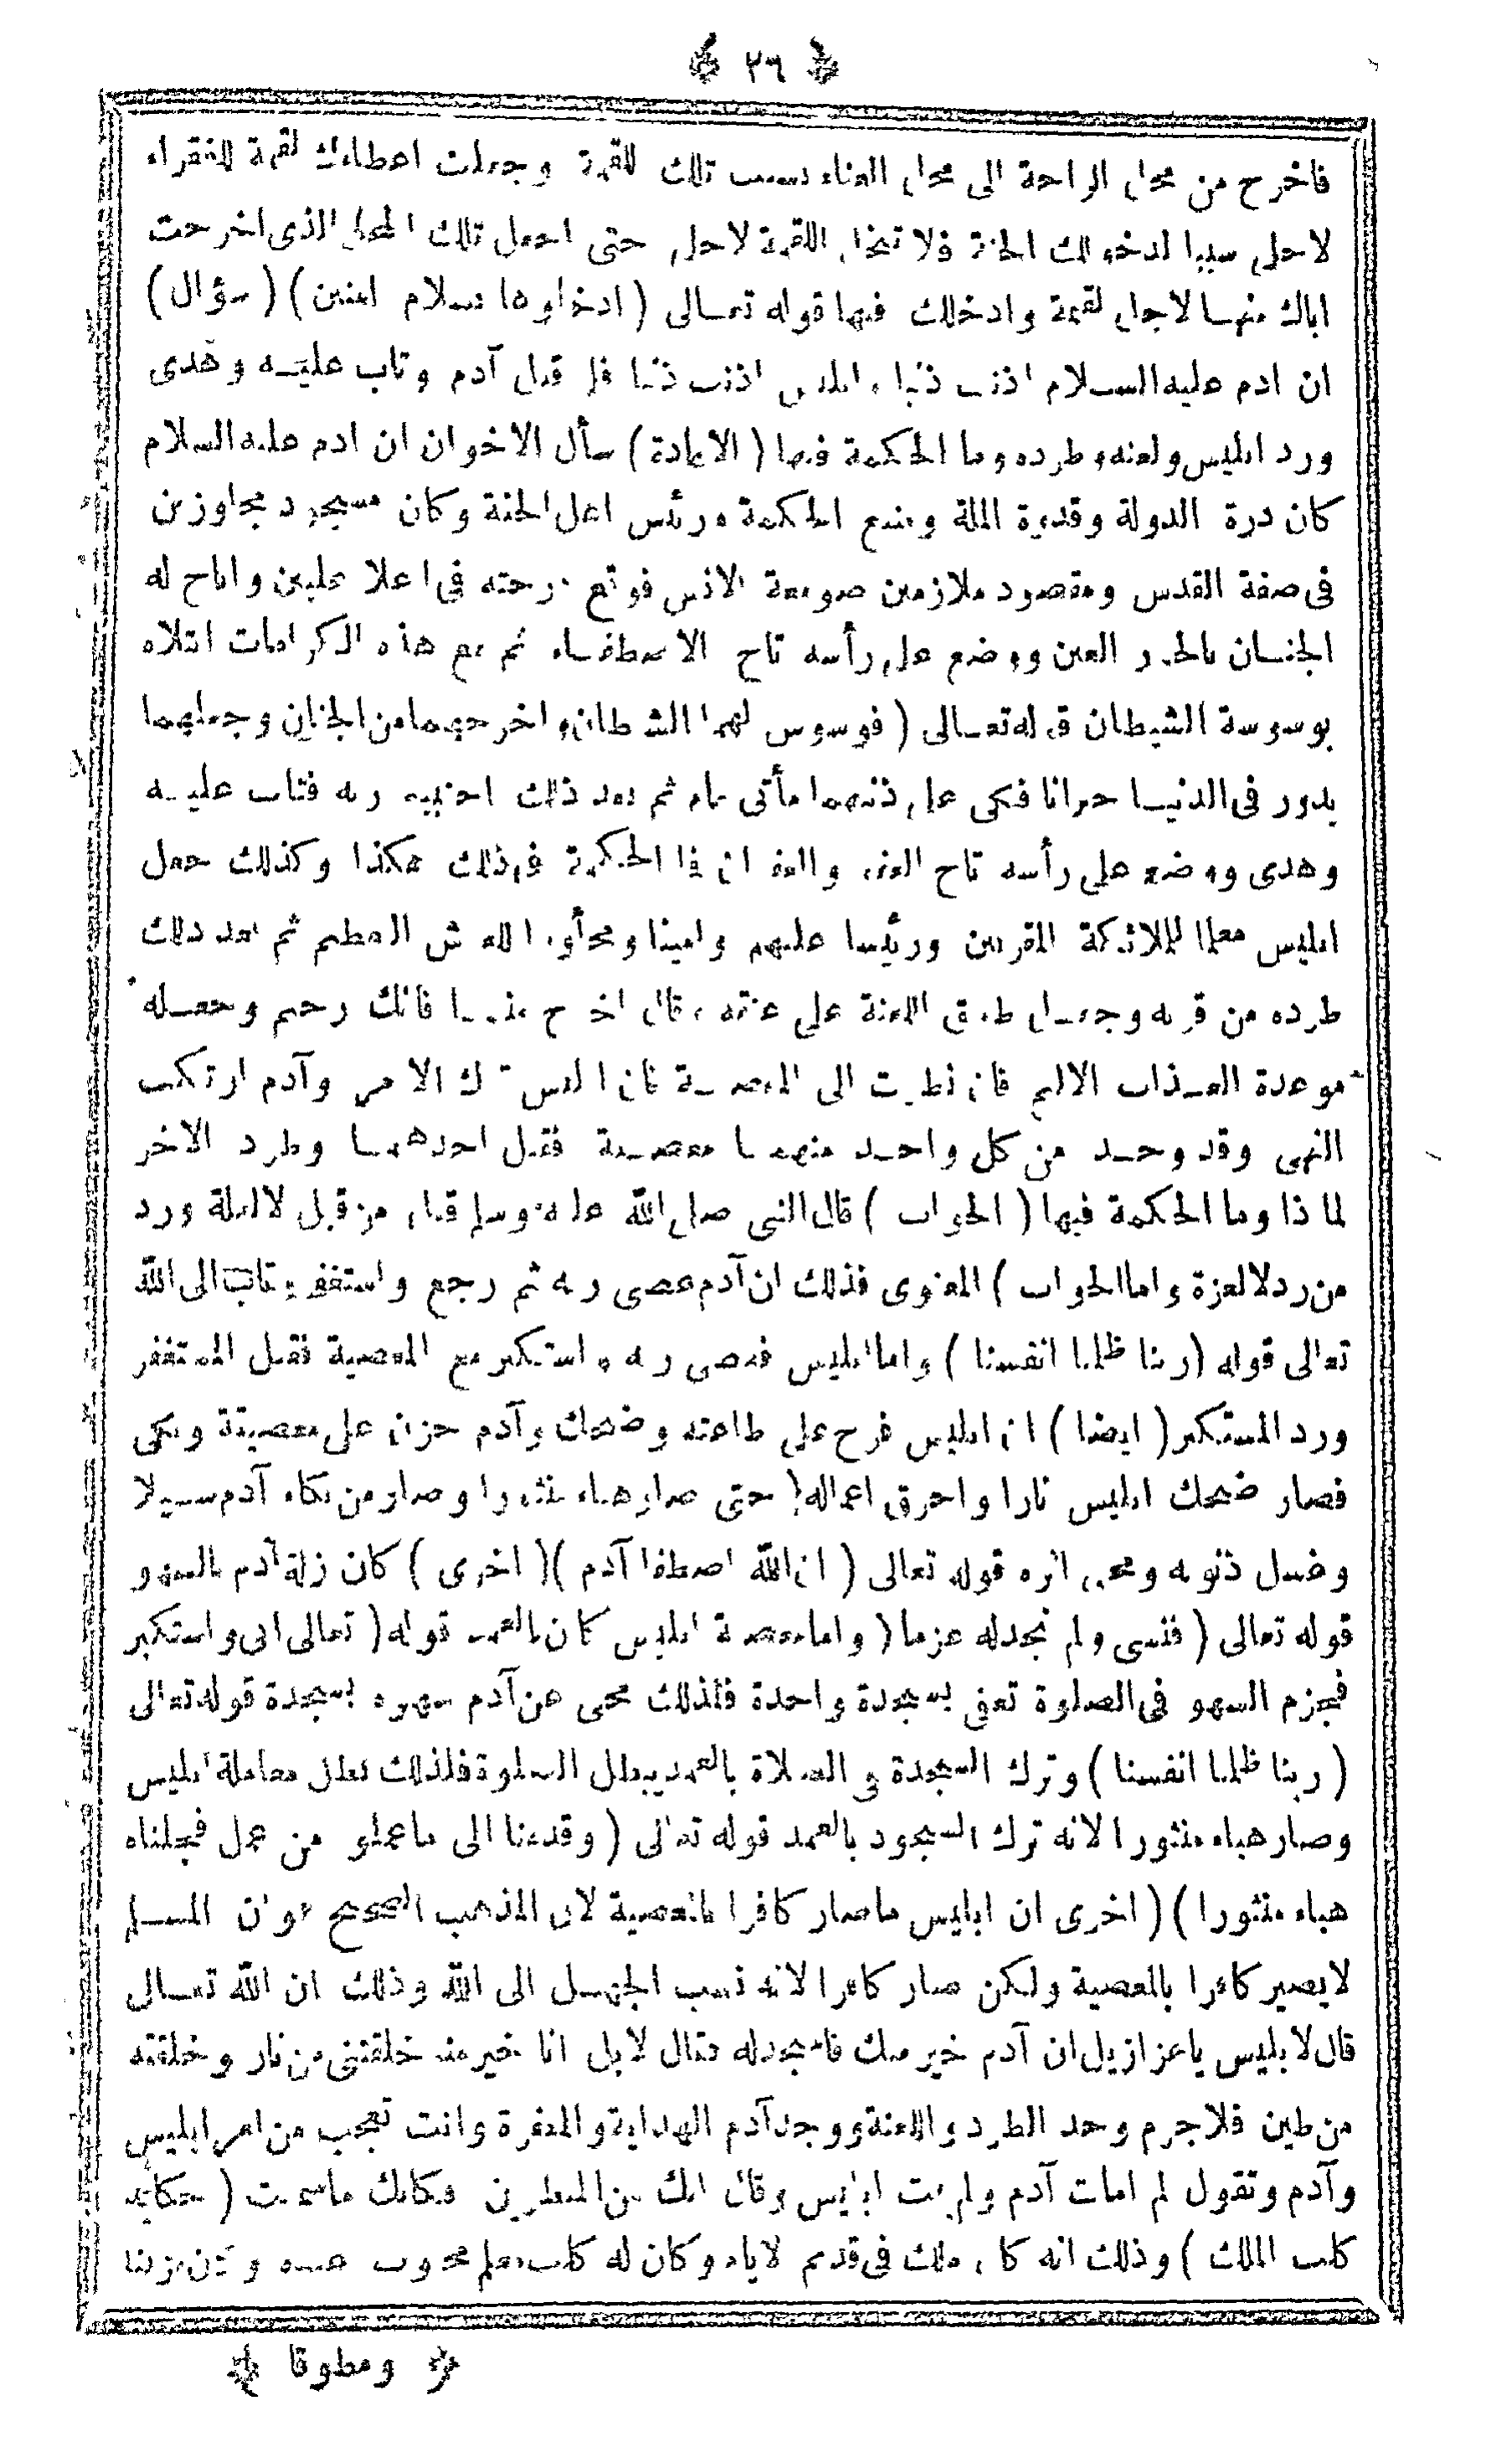 ٢٦
فاخرج من محل الراحة الى محل العناء بسبب تلك اللقمة وجعلت اعطاءك لقمة للفقراء
لاجلى سببا لدخولك الجنة فلا تبخل اللقمة لاجلى حتى اجعل تلك المحل الذى اخرجت
اباك منها لاجل لقمة وادخلك فيها قوله تعالى ( ادخلوها بسلام امنين ) ( سؤال )
ان ادم عليه السلام اذنب ذنبا وابليس اذنب ذنبا فلم قبل آدم وتاب عليه وهدى
ورد ابليس ولعنه وطرده وما الحكمة فيها ( الاعادة ) سأل الاخوان ان ادم عليه السلام
كان درة الدولة وقدوة الملة ومنبع الحكمة ورئس اهل الجنة وكان مسجود مجاوزين
فى صفة القدس ومقصود ملازمين صومعة الانس فوقع درجته فى اعلا عليين واباح له
الجنان بالحور العين ووضع على رأسه تاج الاصطفاء ثم مع هذه الكرامات ابتلاه
بوسوسة الشيطان قوله تعالى ( فوسوس لهما الشيطان واخرجهما من الجنان وجعلهما
يدور فى الدنيا حيرانا فبكى على ذنبهما مأتى عام ثم بعد ذلك اجتبيه ربه فتاب عليه
وهدى ووضع على رأسه تاج العفو والغفران فما الحكمة فى ذلك هكذا وكذلك جعل
ابليس معلما للملائكة المقربين ورئيسا عليهم وامينا ومحأوا العرش العظيم ثم بعد ذلك
طرده من قربه وجعل طوق اللعنة على عنقه وقال اخرج منها فانك رجيم وجعله
موعدة العذاب الاليم فان نظرت الى المعصية فان ابليس ترك الامر وآدم ارتكب
النهى وقد وجد من كل واحد منهما معصية فقبل احدهما وطرد الاخر
لماذا وما الحكمة فيها ( الجواب ) قال النبى صلى الله عليه وسلم قبل من قبل لالعلة ورد
من رد لالعزة واما الجواب ) المعنوى فذلك ان آدم عصى ربه ثم رجع واستغفر وتاب الى الله
تعالى قوله ( ربنا ظلمنا انفسنا ) واما ابليس فعصى ربه واستكبر مع المعصية فقبل المستغفر
ورد المستكبر ( ايضا ) ان ابليس فرح على طاعته وضحك وآدم حزن على معصيته وبكى
فصار ضحك ابليس نارا واحرق اعماله حتى صار هباء منثورا وصار من بكاء آدم سيلا
وغسل ذنوبه ومحى اثره قوله تعالى ( ان الله اصطفا آدم ) ( اخرى ) كان زلة آدم بالسهو
قوله تعالى ( فنسى ولم نجد له عزما ( واما معصية ابليس كان بالعمد قوله ( تعالى ابى واستكبر
فجزم السهو فى الصلوة تعفى بسجدة واحدة فلذلك محى عن آدم سهوه بسجدة قوله تعالى
( ربنا ظلمنا انفسنا ) وترك السجدة فى الصلاة بالعمد يبطل الصلوة فلذلك بطل معاملة ابليس
وصار هباء منثورا الانه ترك السجود بالعمد قوله تعالى ( وقدمنا الى ما عملو من عمل فجعلناه
هباء منثورا ) ( اخرى ان ابليس ما صار كافرا بالمعصية لان المذهب الصحيح هو ان المسلم
لا يصير كافرا بالمعصية ولكن صار كافرا الانه نسب الجهل الى الله وذلك ان الله تعالى
قال لابليس يا عزازيل ان آدم خير منك فاسجد له فقال لا بل انا خير منه خلقتنى من نار وخلقته
من طين فلاجرم وجد الطرد واللعنة ووجد آدم الهداية والمغفرة وانت تعجب من امر ابليس
وآدم وتقول لم امات آدم ولم يمت ابليس وقال انك من المنظرين فكانك ما سمعت ( حكاية
كلب الملك ) وذلك انه كان ملك فى قديم الايام وكان له كلب معلم محبوب عنده وكان مزينا
ومطوقا